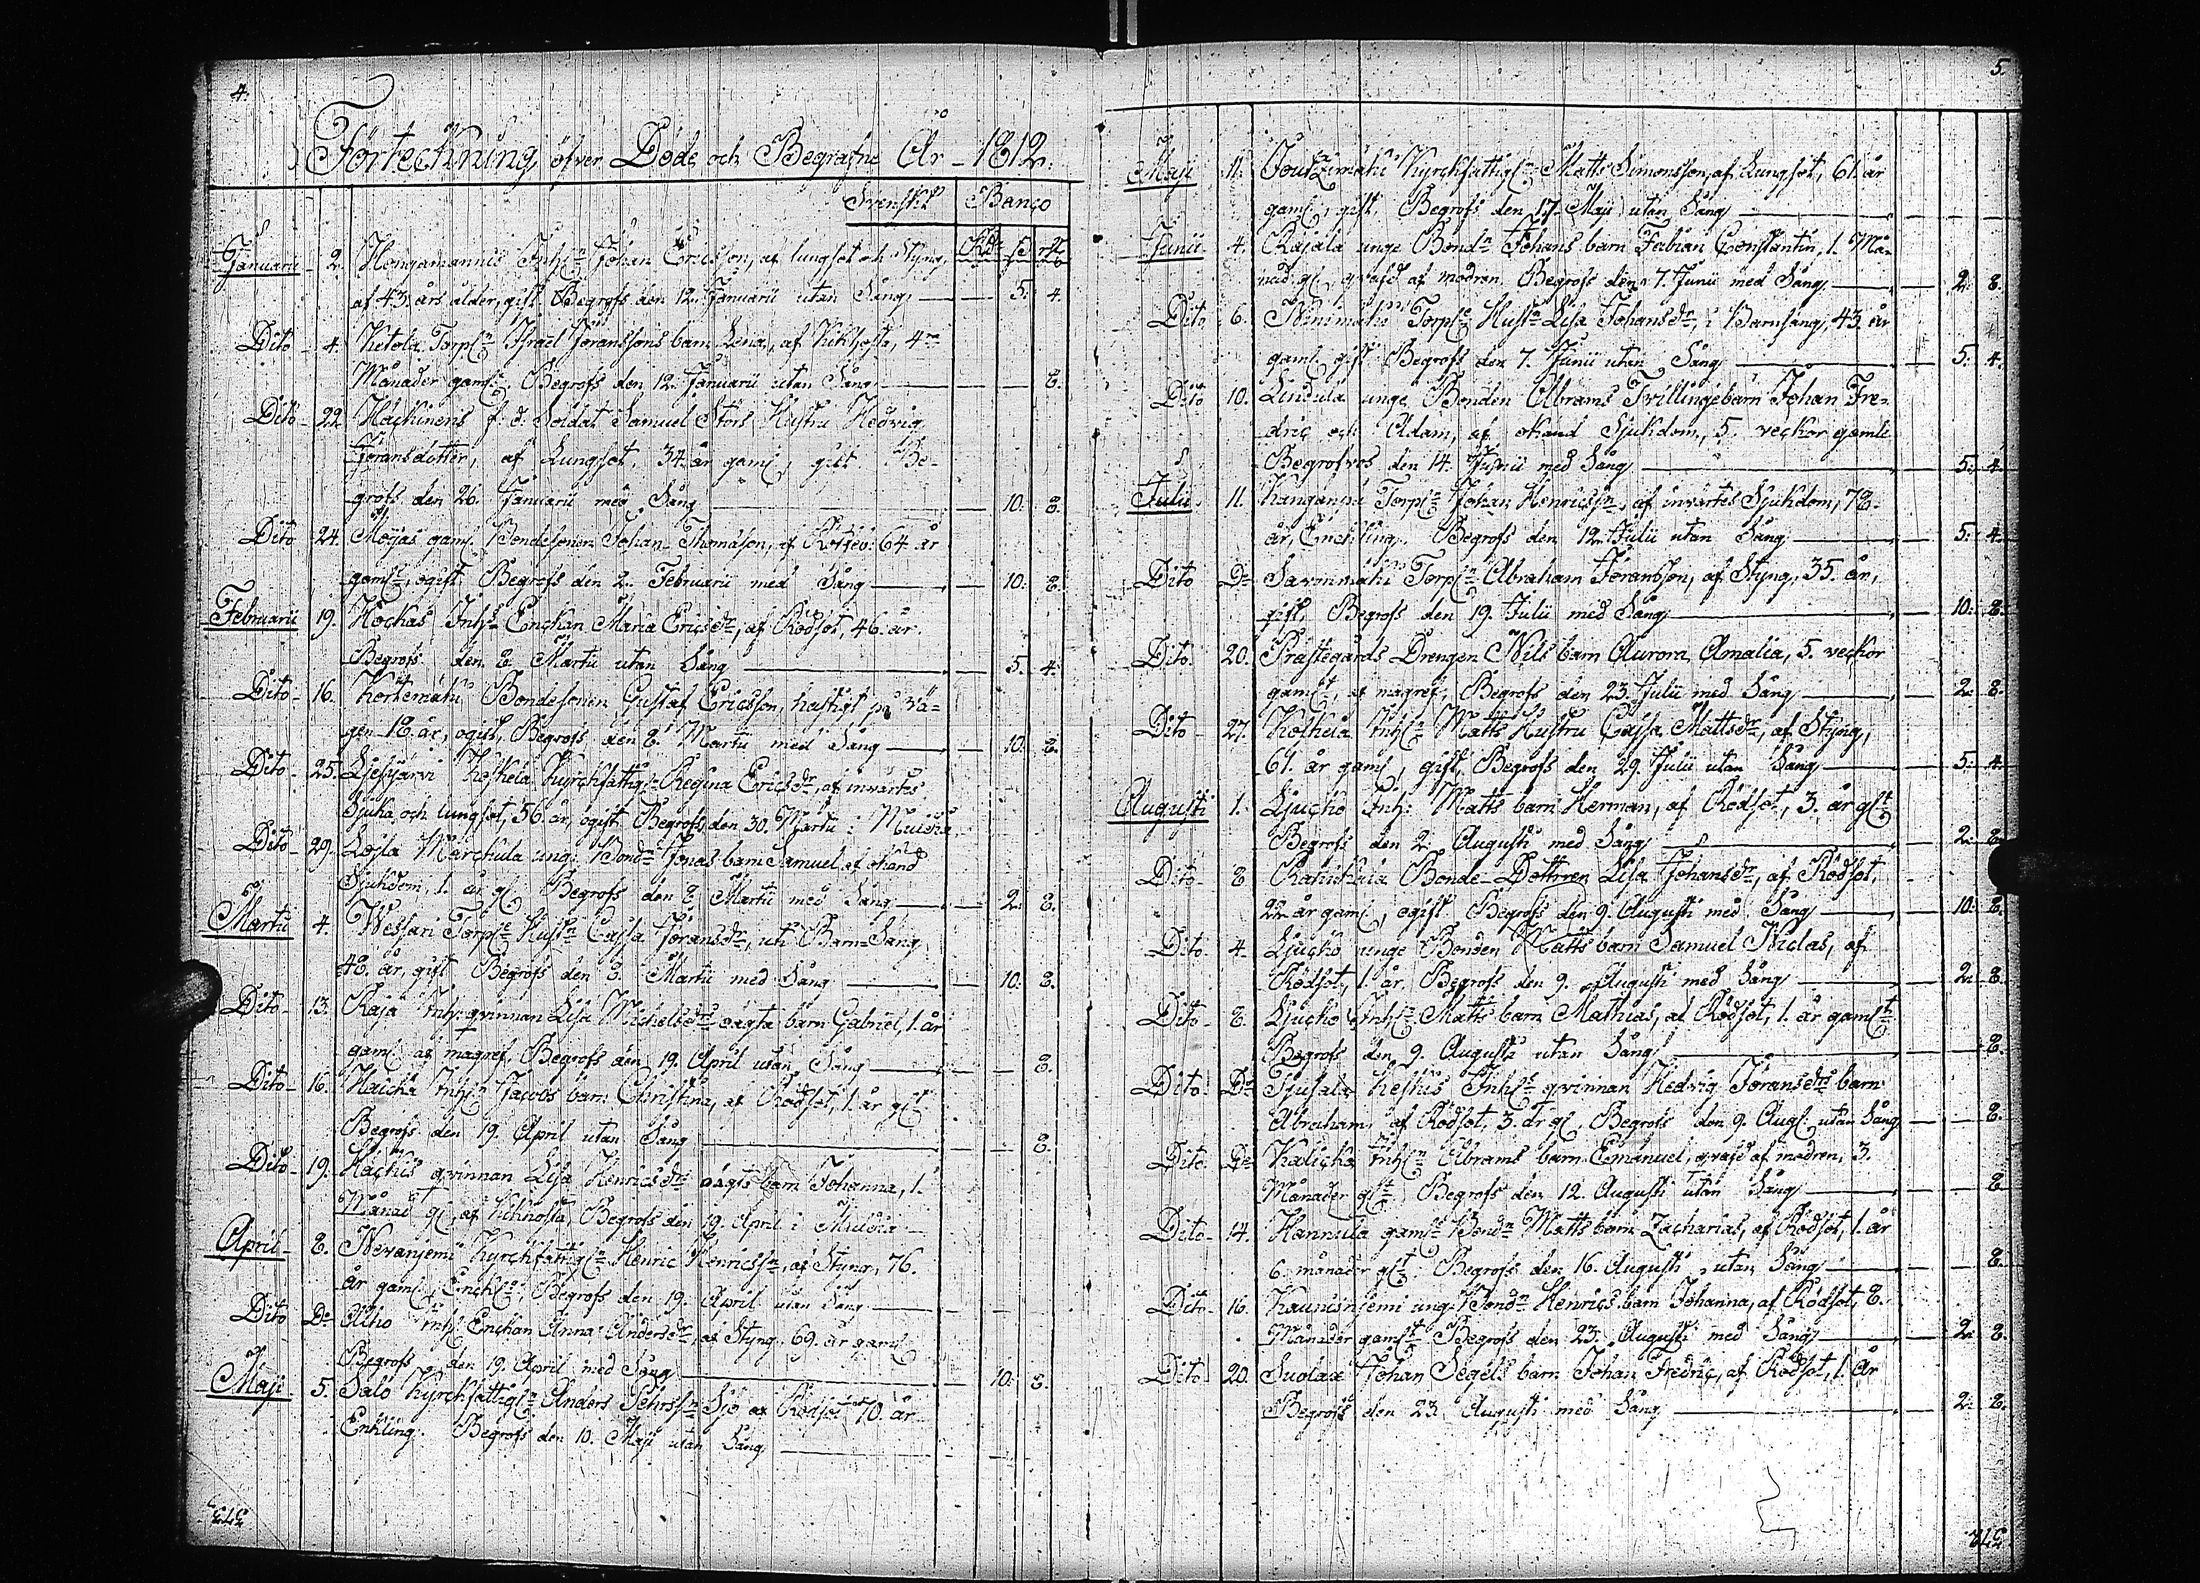 4.
Förteckning öfver Döde och Begrafne År 1812.
Svenskt Banco
Rdr ß rst
Januarii 2. Hongamannis Inhs:n Johan Ericsson, af lungsot och Styng,
af 43 års ålder, gift. Begrofs den 12. Januarii utan Sång 5. 4.
Dito 4. Ketola Torp:n Israel Jöranssons barn Lena, af Kikhosta, 4
Månader gam: Begrofs den 12. Januarii utan Sång 8.
Dito 22. Hackinens f. d. Soldat Samuel Störs Hustru Hedvig
Jöransdotter, af Lungsot, 34 år gam:, gift. Be-
grofs den 26. Januarii med Sång 10. 8.
Dito 24. Möyjas gam: Bondesonen Johan Thomasson, af 64 år
gam:, ogift Begrofs den 2. Februarii med Sång 10. 8.
Februarii 19. Höckas Inhs Enckan Maria Ericsdr, af Rödsot, 46. år.
Begrofs den 8. Martii utan Sång 5. 4.
Dito 16. Kortemäki Bondesonen Gustaf Ericsson, hastigt på vä-
gen 18. år, ogift, Begrofs den 8. Martii med Sång 10. 8.
Dito 25. Koskela Kyrckfattig: Regina Ericsdr, af invärtes
Sjuka och lungsot, 56 år, ogift Begrofs den 30. Martii i
Dito 29. Marckula ung: Bond:n Jonas barn Samuel af okänd
Sjukdom, 1. år g: Begrofs den 8 Martii med Sång 2. 8.
Martii 4. Wessari Torp: Hust:n Cajsa Jöransdr, uti Barn-Säng
48. år, gift Begrofs den 8. Martii med Sång 10. 8.
Dito 13. Raja Inh: qvinnan Lisa Michelsdrs oägta barn Gabriel, 1. år
gam: af magref, Begrofs den 19. April utan Sång 8.
Dito 16. Haicka Inhs: Jacobs barn Christina, af Rödsot, 1. år g:t
Begrofs den 19. April utan Sång 8.
Dito 19. Hackis qvinnan Lisa Henricsdrs oägta barn Johanna, 1.
Månad g: af Kikhosta, Begrofs den 19. April i
April 8. Nevanjemi Kyrckfattig: Henric Henricss:n, af Styng, 76.
år gam:, Enckl:g, Begrofs den 19. April utan Sång
Dito D:o Alho Inh: Enckan Anna Andersdr, af Styng, 69. år gam:
Begrofs den 19. April med Sång 10. 8.
Maji 5. Salo Kyrckfattig: Anders Pehrss:n af Rödsot 70. år
Enkling. Begrofs den 10. Maji utan Sång
5.
Maji 11. Kyrckfattig: Matts Simonsson, af Lungsot, 61. år
gam:, gift. Begrofs den 17. Maji utan Sång
Junii 4. Rajala unge Bond:n Johans barn Fabian Constantin, 1. Må-
nad g: qväfd af modren. Begrofs den 7. Junii med Sång 2. 8.
Dito 6. Niinimäki Torp: Hust:n Lisa Johansdr, i Barnsäng, 43. år
gam: gift. Begrofs den 7. Junii utan Sång 5. 4.
Dito 10. Lindula unge Bonden Abrams Tvillingebarn Johan Fre-
dric och Adam, af okänd Sjukdom, 5. veckor gamle
Begrofvos den 14. Junii med Sång 5. 4.
Julii 11. Kangänpä Torp:n Johan Henricss:n, af invärtes Sjukdom, 78.
år, Enckling. Begrofs den 12. Julii utan Sång 5. 4.
Dito D:o Savinmäki Torp:n Abraham Jöransson, af Styng, 35. år,
gift. Begrofs den 19. Julii med Sång 10. 8.
Dito 20. Prästegårds Drengen Nils barn Aurora Amalia, 5. veckor
gam:t, af magref, Begrofs den 23. Julii med Sång 2. 8.
Dito 27. Inhs: Matts Hustru Cajsa Mattsdr, af Styng,
61. år gam:, gift. Begrofs den 29. Julii utan Sång 5. 4.
Augusti 1. Ljucko Inh: Matts barn Herman, af Rödsot, 3. år g:t
Begrofs den 2. Augusti med Sång 2. 8.
Dito 8. Bonde-Dottren Lisa Johansdr, af Rödsot,
22 år gam:, ogift. Begrofs den 9. Augusti med Sång 10. 8.
Dito 4. Ljucko unge Bonden Matts barn Samuel Niclas, af
Rödsot, 1. år. Begrofs den 9. Augusti med Sång 2. 8.
Dito 8. Ljucko Inhs: Matts barn Mathias, af Rödsot, 1. år gam:t
Begrofs den 9. Augusti utan Sång 8.
Dito D:o Heskus Inhs: qvinnan Hedvig Jöransdrs barn
Abraham af Rödsot, 3. år g:, Begrofs den 9. Aug: utan Sång 8.
Dito D:o Kalicko Inhs:n Abrams barn Emanuel, qväfd af modren, 3.
Månader g:t Begrofs den 12. Augusti utan Sång 8.
Dito 14. Hannula gam: Bond:n Matts barn Zacharias, af Rödsot, 1. år
6. månader g:t Begrofs den 16. Augusti utan Sång 8.
Dito 16. Kaunisnjemi ung: Bond:n Henrics barn Johanna, af Rödsot, 8.
Månader gam:t Begrofs den 23. Augusti med Sång 2. 8.
Dito 20. Johan Segels barn Johan Fredric, af Rödsot, 1. år
Begrofs den 23. Augusti med Sång 2. 8.